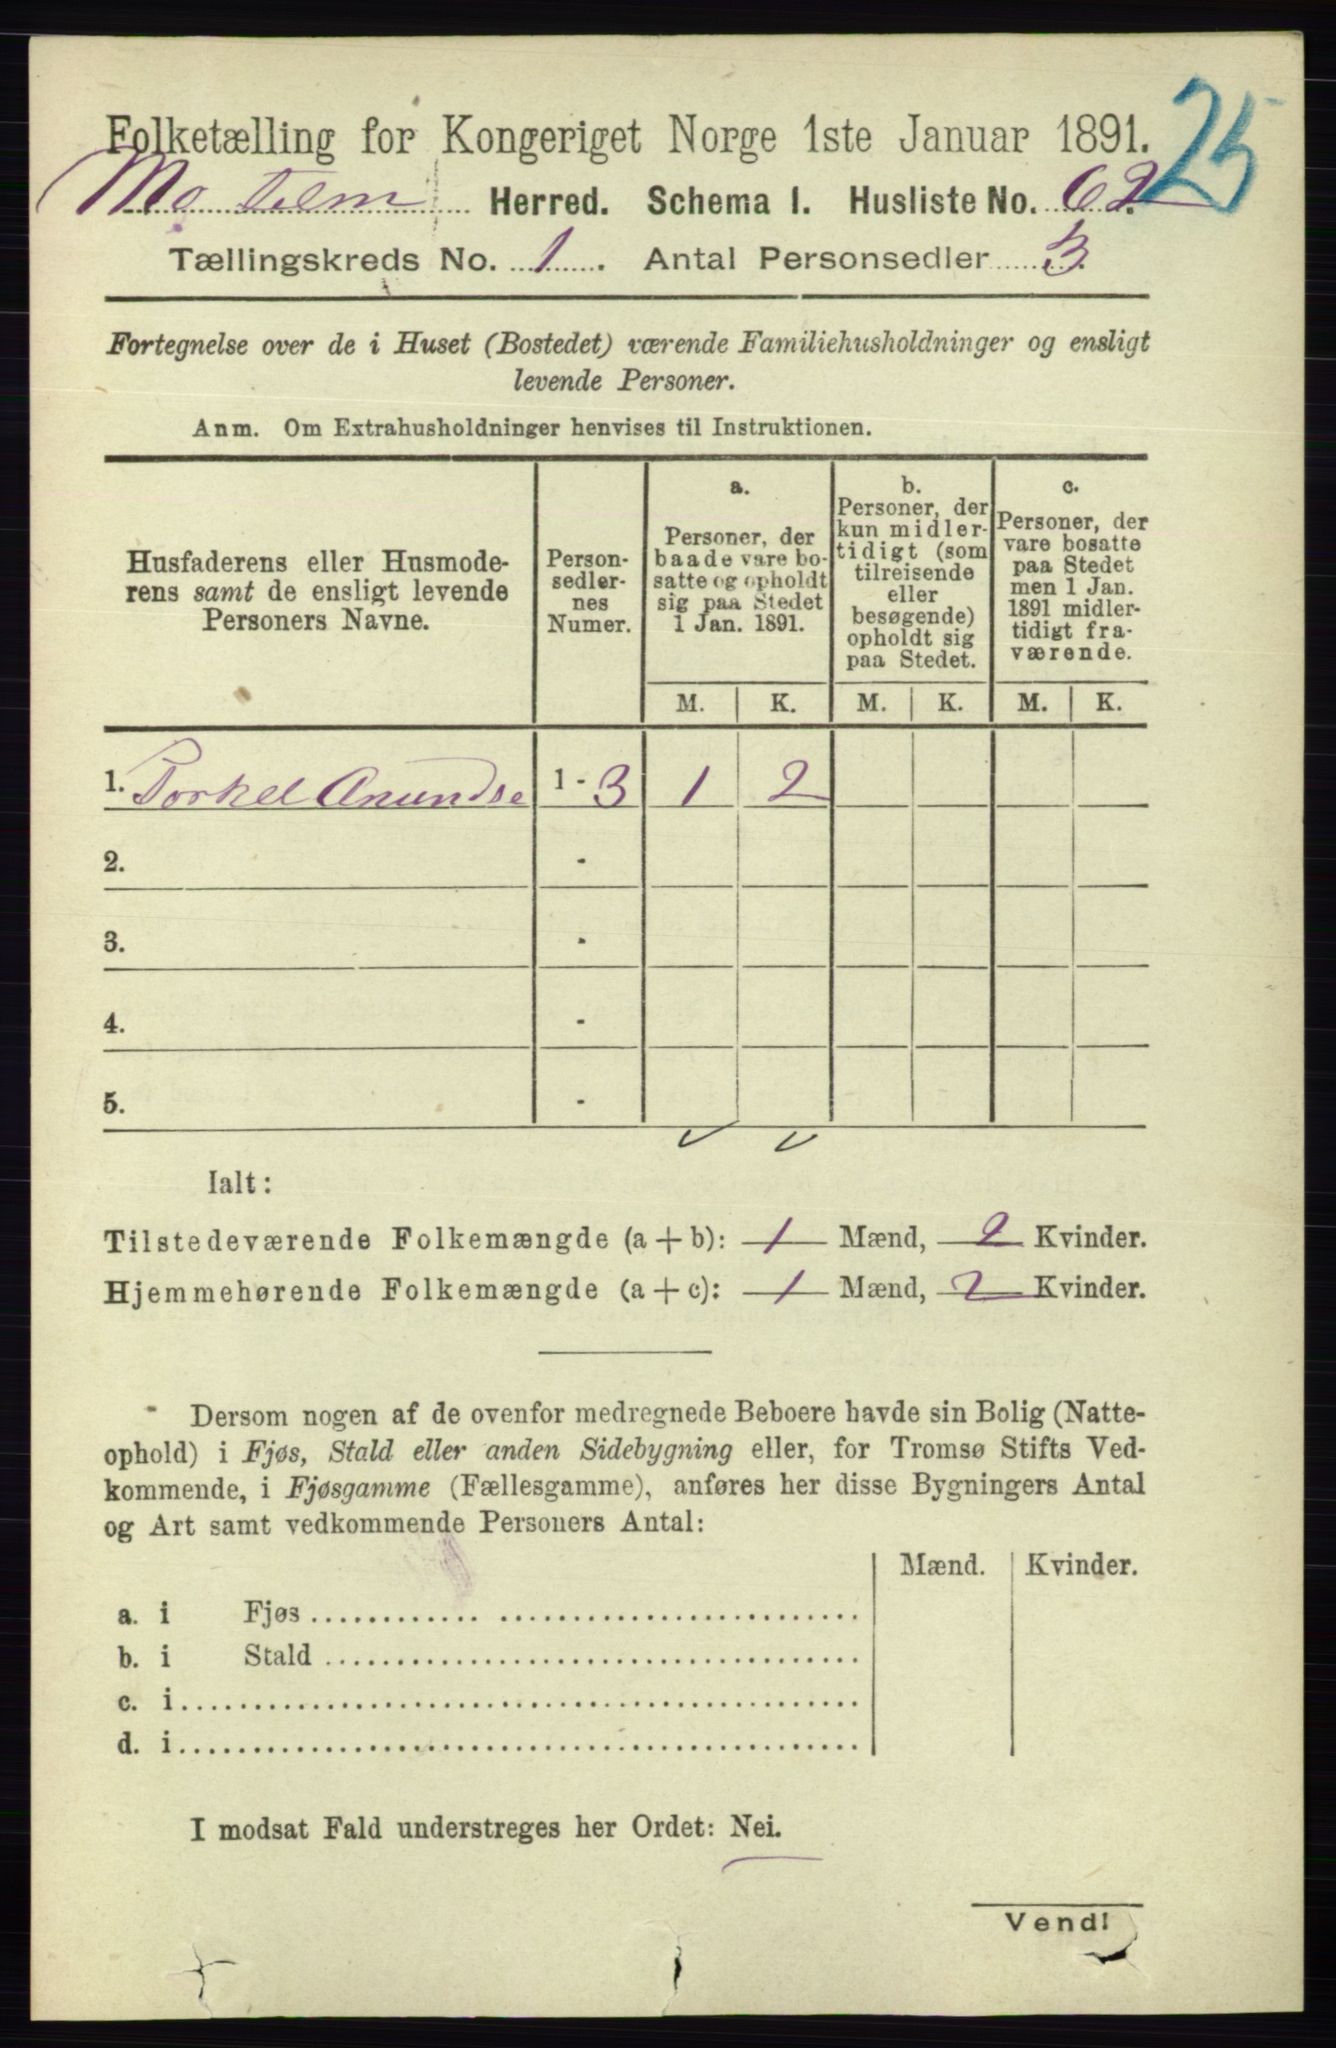 25
Folketælling for Kongeriget Norge 1ste Januar 1891.
Mo Telm Herred. Schema I. Husliste No. 62.
Tællingskreds No. 1. Antal Personsedler 3.
Fortegnelse over de i Huset (Bostedet) værende Familiehusholdninger og ensligt
levende Personer.
Anm. Om Extrahusholdninger henvises til Instruktionen.
Husfaderens eller Husmode-
rens samt de ensligt levende
Personers Navne.
Person-
sedler-
nes
Numer.
a.
Personer, der
baade vare bo-
satte og opholdt
sig paa Stedet
1 Jan. 1891.
b.
Personer, der
kun midler-
tidigt (som
tilreisende
eller
besøgende)
opholdt sig
paa Stedet.
c.
Personer, der
vare bosatte
paa Stedet
men 1 Jan.
1891 midler-
tidigt fra-
værende.
M. K. M. K. M. K.
1. Torkel Anundse 1 - 3 1 2
2. -
3. -
4. -
5. -
Ialt:
Tilstedeværende Folkemængde (a + b): 1 Mænd, 2 Kvinder.
Hjemmehørende Folkemængde (a + c): 1 Mænd, 2 Kvinder.
Dersom nogen af de ovenfor medregnede Beboere havde sin Bolig (Natte-
ophold) i Fjøs, Stald eller anden Sidebygning eller, for Tromsø Stifts Ved-
kommende, i Fjøsgamme (Fællesgamme), anføres her disse Bygningers Antal
og Art samt vedkommende Personers Antal:
Mænd. Kvinder.
a. i Fjøs
b. i Stald
c. i
d. i
I modsat Fald understreges her Ordet: Nei.
Vend!